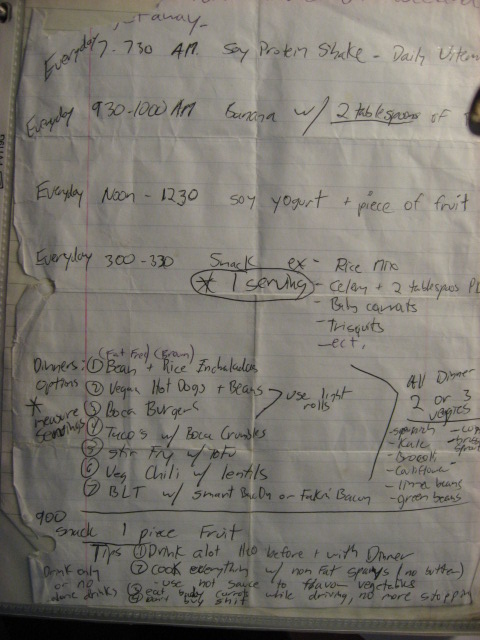 Everyday 7-730 AM. Soy Protein Shake - Daily
Everyday 930-1000 AM Banana w/ 2 tablespoons of
Everyday Noon - 1230 soy yogurt + piece of fruit
Everyday 300-330 Snack ex - Rice mix
* 1 serving
- Celery + 2 tablespoos
- Baby carrots
- Trisquits
- ect.
(Fat Free) (Brown)
Dinners: ① Bean + Rice Inchaladas
options ② Vegan Hot Dogs + Beans
* ③ Boca Burgers
use light rolls
measure servings
④ Taco's w/ Boca Crumbles
⑤ stir fry w/ tofu
⑥ Veg Chili w/ lentils
⑦ BLT w/ smart BaCon or Fakin Bacon
All Dinner
2 or 3
veggies
- spinich
- Kale
- Brocoli
- Cauliflower
- lima beans
- green beans
900
Snack 1 piece Fruit
Tips ① Drink alot H2O before + with Dinner
② cook everything w/ non Fat sprays (no butter)
- use hot sauce to flavor vegetables
③ eat baby carrots while driving, no more stoppin
④ Dont buy shit
Drink only
or no
drinks)